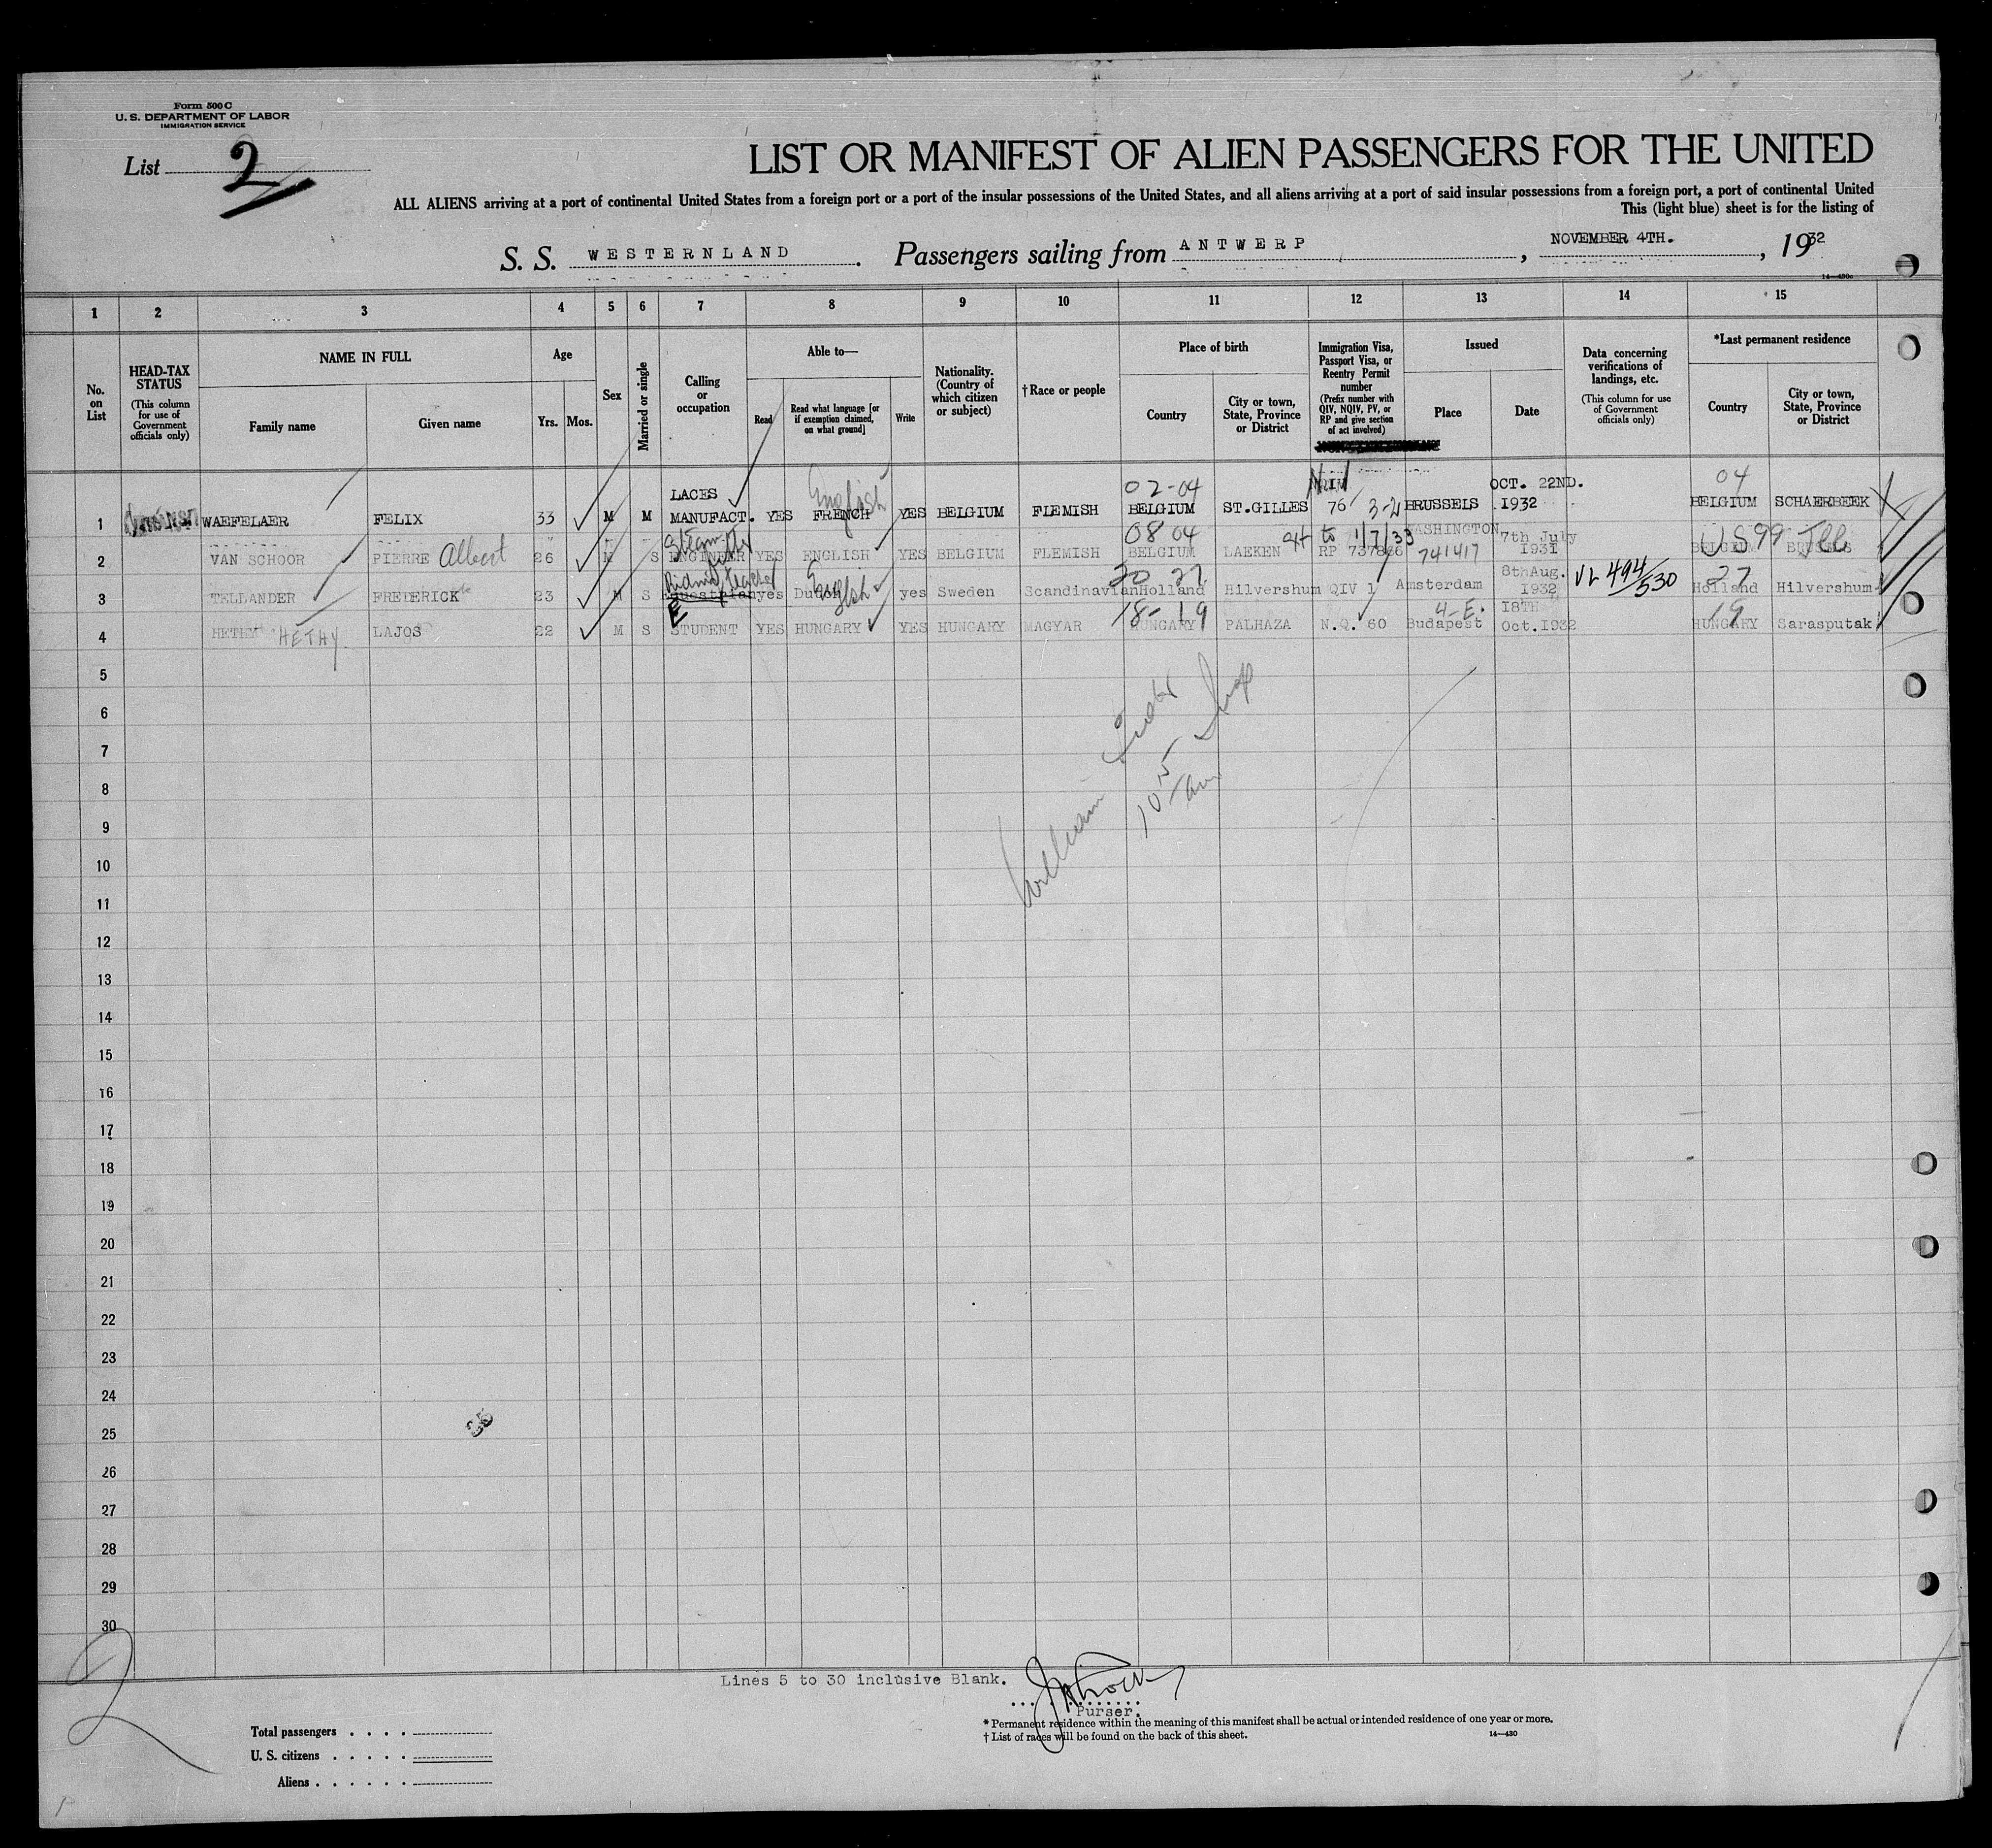 Form 500 C
U. S. DEPARTMENT OF LABOR
IMMIGRATION SERVICE
List 2
LIST OR MANIFEST OF ALIEN PASSENGERS FOR THE UNITED
ALL ALIENS arriving at a port of continental United States from a foreign port or a port of the insular possessions of the United States, and all aliens arriving at a port of said insular possessions from a foreign port, a port of continental United
This (light blue) sheet is for the listing of
S. S. WESTERNLAND. Passengers sailing from ANTWERP, NOVEMBER 4TH., 1932
14—430c
1 2 3 4 5 6 7 8 9 10 11 12 13 14 15
No. on List
HEAD-TAX STATUS
(This column for use of Government officials only)
NAME IN FULL
Family name
Given name
Age
Yrs. Mos.
Sex
Married or single
Calling or occupation
Able to—
Read
Read what language [or if exemption claimed, on what ground]
Write
Nationality. (Country of which citizen or subject)
† Race or people
Place of birth
Country
City or town, State, Province or District
Immigration Visa, Passport Visa, or Reentry Permit number
(Prefix number with QIV, NQIV, PV, or RP and give section of act involved)
Issued
Place
Date
Data concerning verifications of landings, etc.
(This column for use of Government officials only)
*Last permanent residence
Country
City or town, State, Province or District
LACES English 02-04 OCT. 22ND. 04
1 WAEFELAER FELIX 33 M M MANUFACT. YES FRENCH YES BELGIUM FLEMISH BELGIUM ST.GILLES 76 3-2 BRUSSELS 1932 BELGIUM SCHAERBEEK
Steam fitter 08 04 to 1/7/33 WASHINGTON 7th July US 99
2 VAN SCHOOR PIERRE Albert 26 M S ENGINEER YES ENGLISH YES BELGIUM FLEMISH BELGIUM LAEKEN RP 737866 741417 1931 BELGIUM BRUSSELS
Riding teacher English 20 27 8th Aug. VL 494/530 27
3 TELLANDER FREDERICK 23 M S yes Dutch yes Sweden Scandinavian Holland Hilvershum QIV 1 Amsterdam 1932 Holland Hilvershum
E 18-19 4-E. 18TH 19
4 HETHY HETHY LAJOS 22 M S STUDENT YES HUNGARY YES HUNGARY MAGYAR HUNGARY PALHAZA N.Q. 60 Budapest Oct.1932 HUNGARY Sarasputak
5
6
7
8
William
10 15 am
9
10
11
12
13
14
15
16
17
18
19
20
21
22
23
24
25
35
26
27
28
29
30
2
Lines 5 to 30 inclusive Blank.
Purser.
Total passengers
U. S. citizens
Aliens
* Permanent residence within the meaning of this manifest shall be actual or intended residence of one year or more.
† List of races will be found on the back of this sheet.
14—430